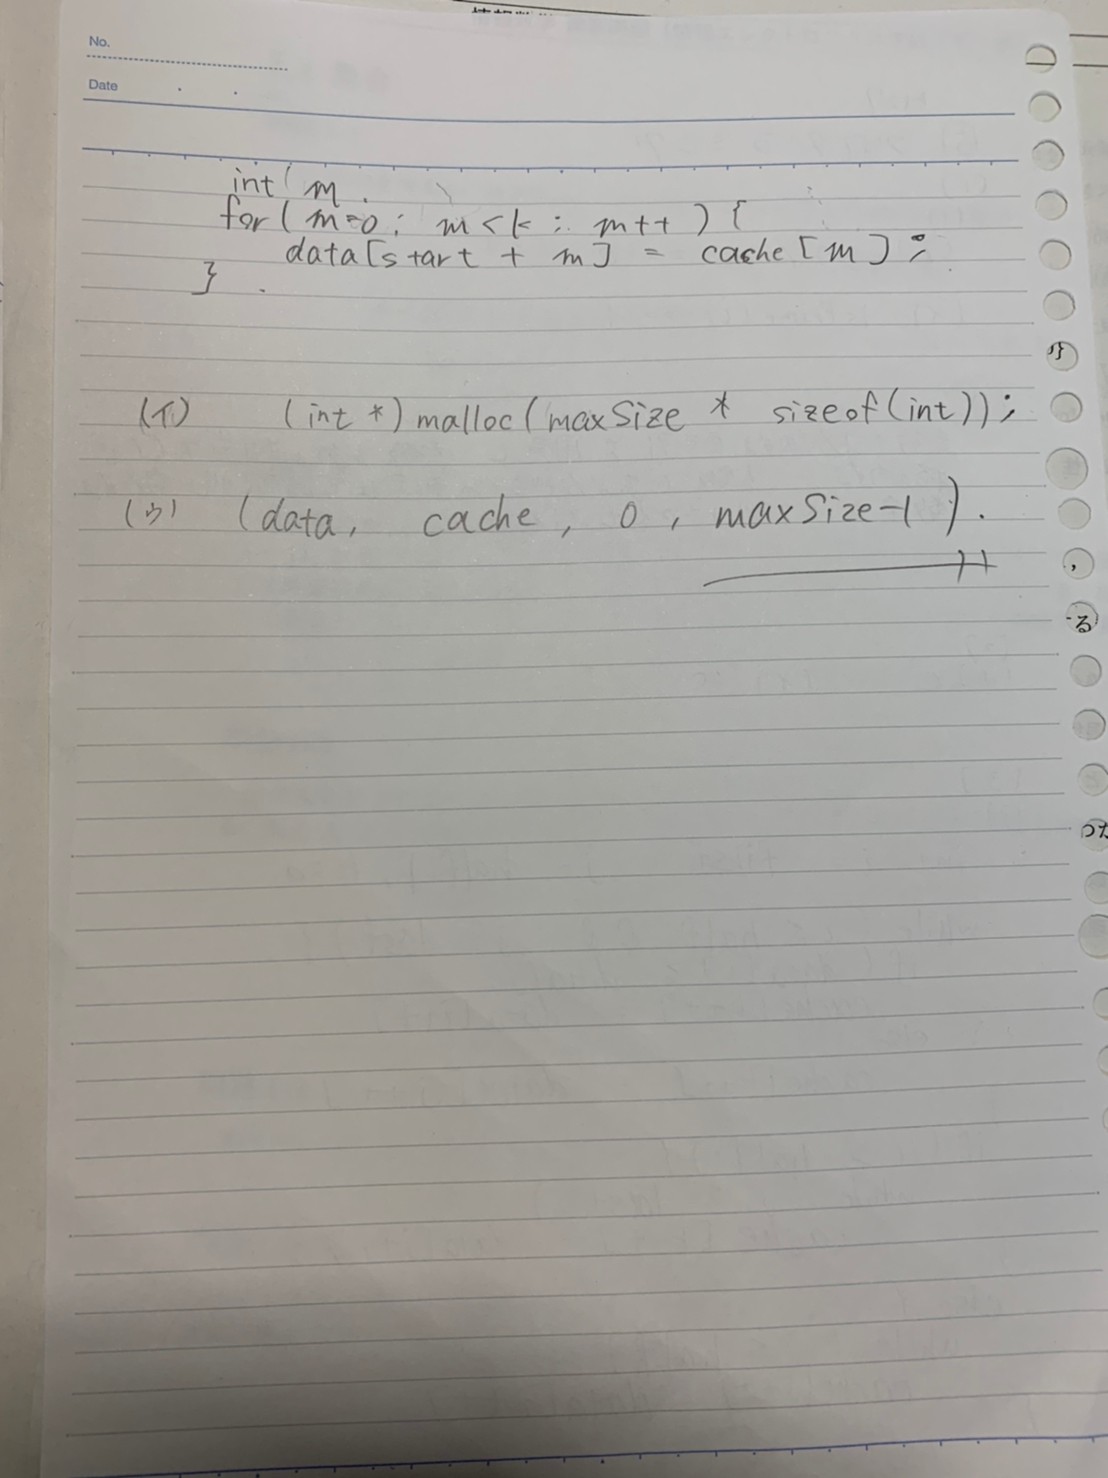 No.
Date
int m.
for( m=0; m<k; m++ ) {
data[start + m] = cache[m];
}
(イ) (int *) malloc(maxSize * sizeof(int));
(ウ) (data, cache, 0, maxSize-1).
る